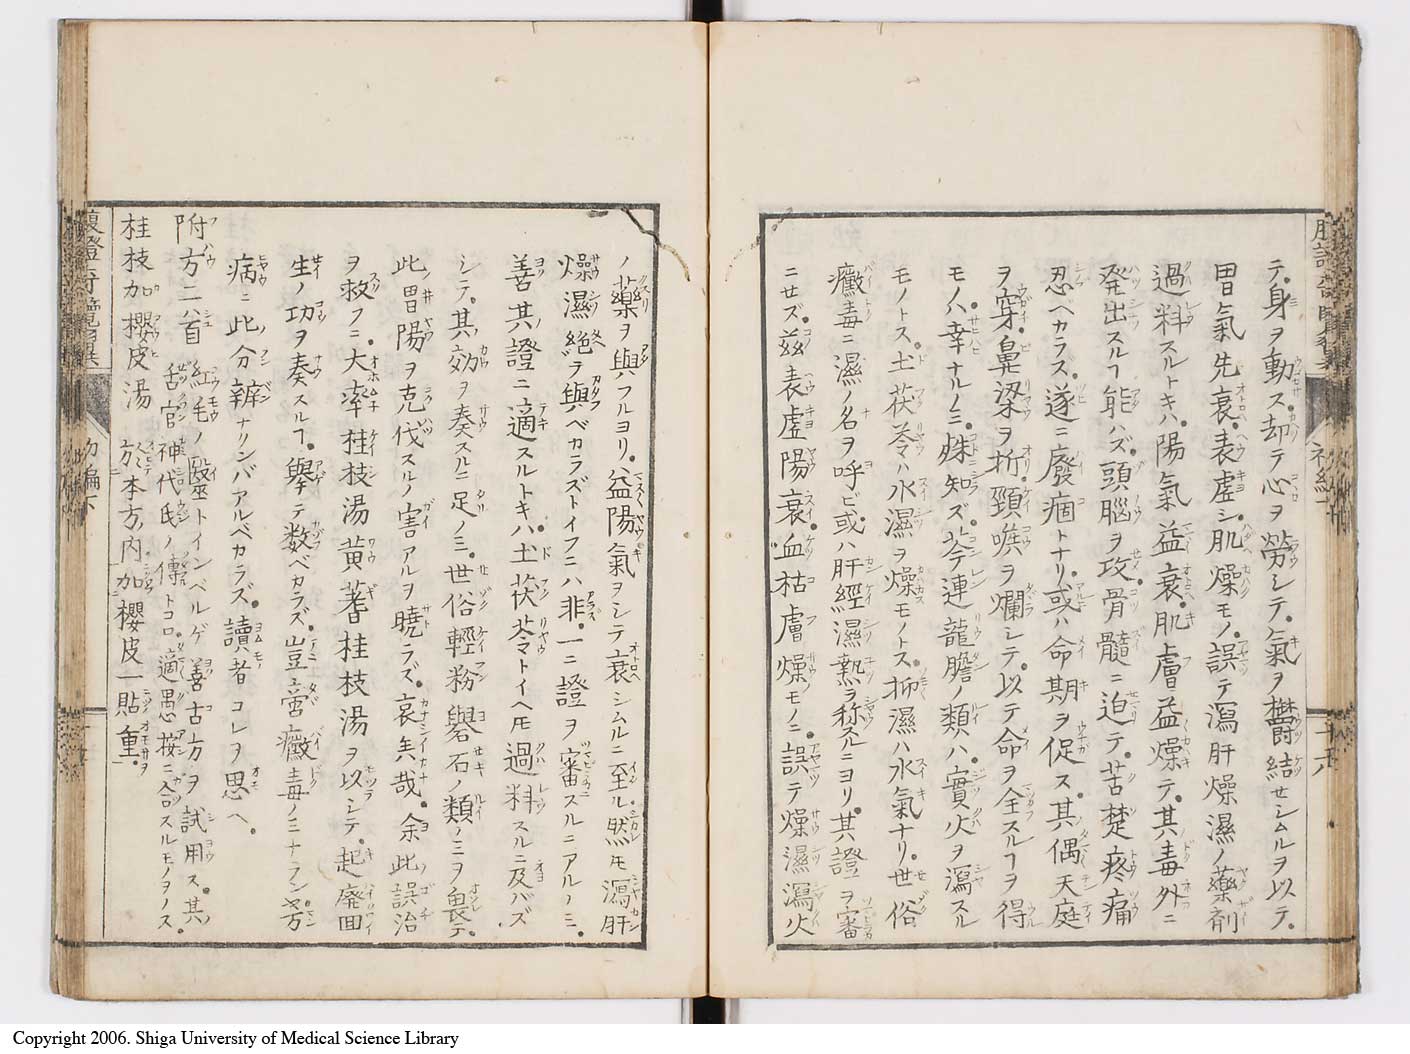 テ身ヲ動ス却テ心ヲ勞シテ氣ヲ欝結セシムルヲ以テ
胃氣先衰表虚シ肌燥モノ誤テ瀉肝燥濕ノ藥剤
過料スルトキハ陽氣益衰肌膚益燥テ其毒外ニ
発出スルヿ能ハズ頭腦ヲ攻骨髓ニ迫テ苦楚疼痛
忍ベカラス遂ニ廢痼トナリ或ハ命期ヲ促ス其偶天庭
ヲ穿鼻梁ヲ折頸喉ヲ爛シテ以テ命ヲ全スルヿヲ得
モノハ幸ナルノミ殊知ズ芩連龍膽ノ類ハ實火ヲ瀉スル
モノトス土茯苓ハ水濕ヲ燥モノトス抑濕ハ水氣ナリ世俗
黴毒ニ濕ノ名ヲ呼ビ或ハ肝經濕熱ヲ称スルニヨリ其證ヲ審
ニセズ茲表虚陽衰血枯膚燥モノニ誤テ燥濕瀉火
ノ藥ヲ與フルヨリ益陽氣ヲシテ衰シムルニ至ル然モ瀉肝
燥濕絶ヲ與ベカラズトイフニハ非一ニ證ヲ審スルニアルノミ
善其證ニ適スルトキハ土茯苓トイヘモ過料スルニ及バズ
シテ其効ヲ奏スルニ足ノミ世俗輕粉礜石ノ類ノミヲ畏テ
此胃陽ヲ克伐スルノ害アルヲ曉ラズ哀矣哉余此誤治
ヲ救フニ大率桂枝湯黄耆桂枝湯ヲ以シテ起廃回
生ノ功ヲ奏スルヿ擧テ数ベカラズ豈啻黴毒ノミナランヤ万
病ニ此分辨ナクンバアルベカラズ讀者コレヲ思ヘ
附方二八首 紅毛ノ醫トインベルゲ善古方ヲ試用ス其
舌官神代氏ノ傳トコロ適愚按ニ合スルモノヲノス
桂枝加櫻皮湯 於本方内加櫻皮一貼重
腹證奇覽翼
初編下